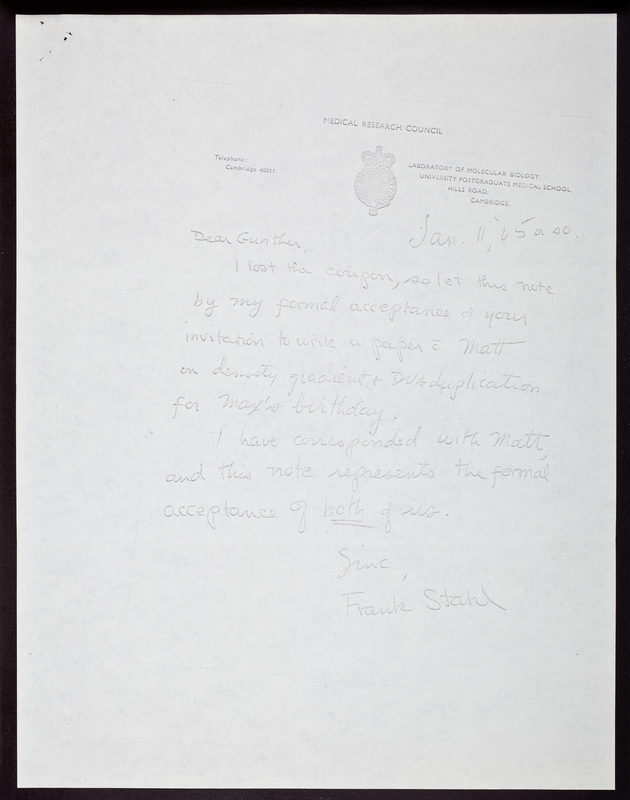 MEDICAL RESEARCH COUNCIL
Telephone:
Cambridge 48011
LABORATORY OF MOLECULAR BIOLOGY,
UNIVERSITY POSTGRADUATE MEDICAL SCHOOL,
HILLS ROAD,
CAMBRIDGE.
Jan. 11, '65 or so.
Dear Gunther,
I lost the coupon, so let this note
by my formal acceptance of your
invitation to write a paper c̄ Matt
on density gradients & DNA duplication
for Max's birthday.
I have corresponded with Matt,
and this note represents the formal
acceptance of both of us.
Sinc.,
Frank Stahl